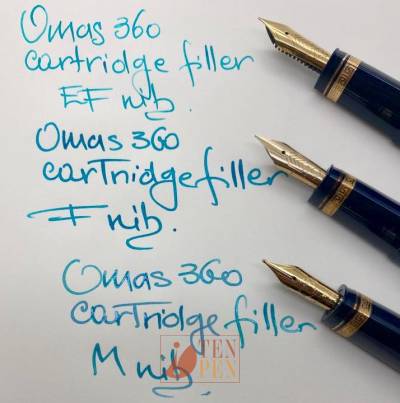 Omas 360
cartridge filler
EF nib.
Omas 360
carTridge filler
F nib.
Omas 360
carTridge filler
M nib.
TEN
PEN